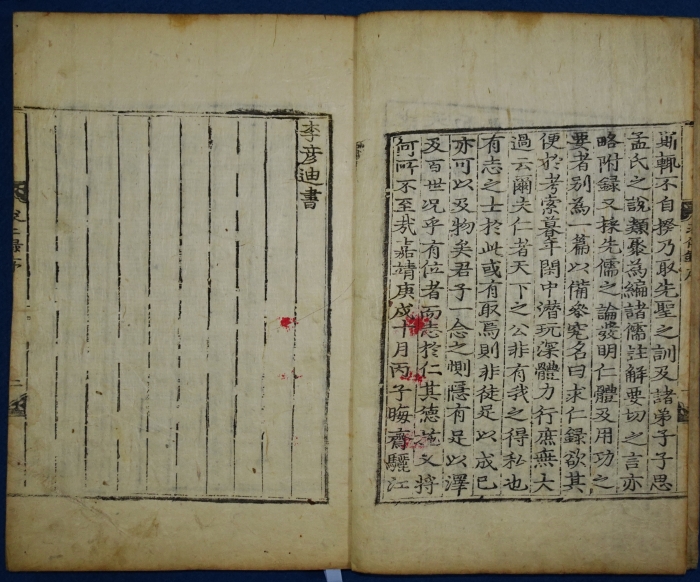 斯輒不自揆乃取先聖之訓及諸弟子子思
孟氏之說類聚為編諸儒註解要切之言亦
略附錄又採先儒之論發明仁體及用功之
要者別為一篇以備參究名曰求仁錄欲其
便於考索暮年閑中潛玩深體力行庶無大
過云爾夫仁者天下之公非有我之得私也
有志之士於此或有取焉則非徒足以成已
亦可以及物矣君子一念之惻隱有足以澤
及百世况乎有位者而志於仁其德施又將
何所不至哉嘉靖庚戌十月丙子晦齋驪江
李彦迪書
求仁錄序
二